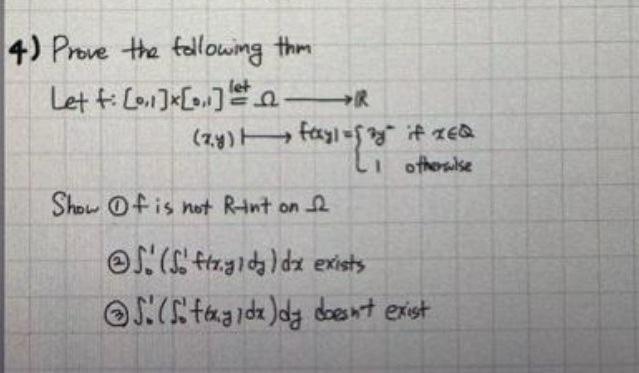 4) Prove the following thm
Let f: [0,1]×[0,1] ≝ Ω → ℝ
(x,y) ↦ f(x,y) = { if x∈Q
1 otherwise
Show ① f is not R-Int on Ω
② ∫₀¹(∫₀¹ f(x,y)dy)dx exists
③ ∫₀¹(∫₀¹ f(x,y)dx)dy doesn't exist